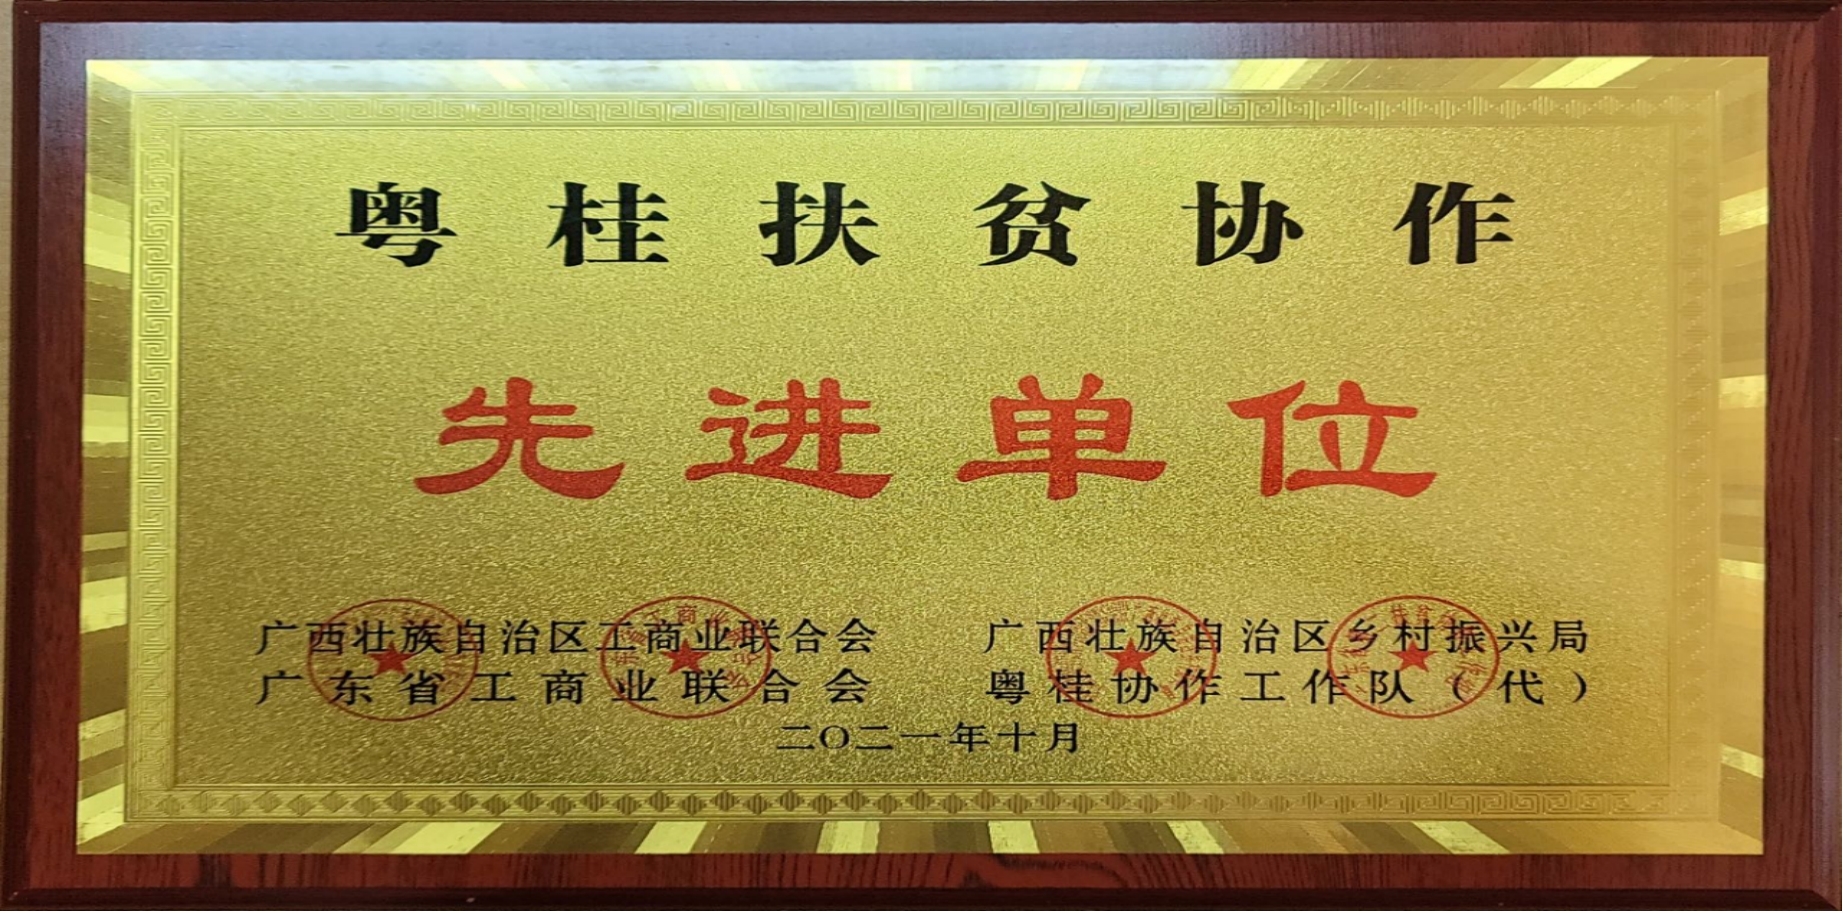 粤桂扶贫协作
先进单位
广西壮族自治区工商业联合会 广西壮族自治区乡村振兴局
广东省工商业联合会 粤桂协作工作队（代）
二〇二一年十月